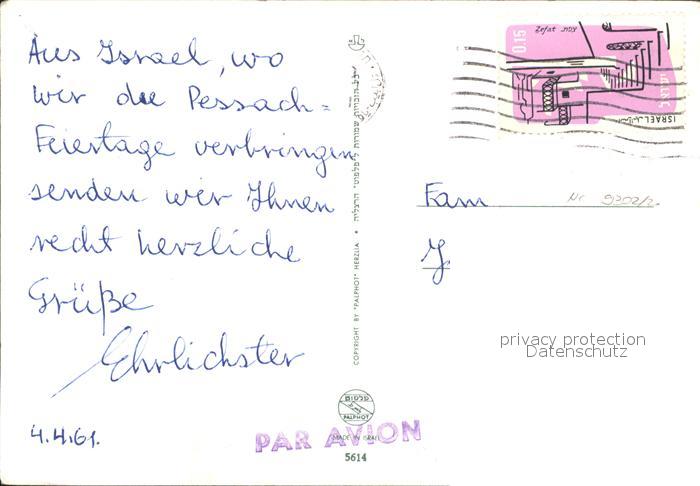 Aus Israel, wo
wir die Pessach=
Feiertage verbringen
senden wir Ihnen
recht herzliche
Grüße
Ehrlichster
4.4.61.
COPYRIGHT BY "PALPHOT" HERZLIA • כל הזכויות שמורות ל"פלפוט" הרצליה
פלפוט
PALPHOT
MADE IN ISRAEL
5614
PAR AVION
0.15
Zefat צפת
ישראל
ISRAEL
Fam
Nr 9302/2
J
privacy protection
Datenschutz